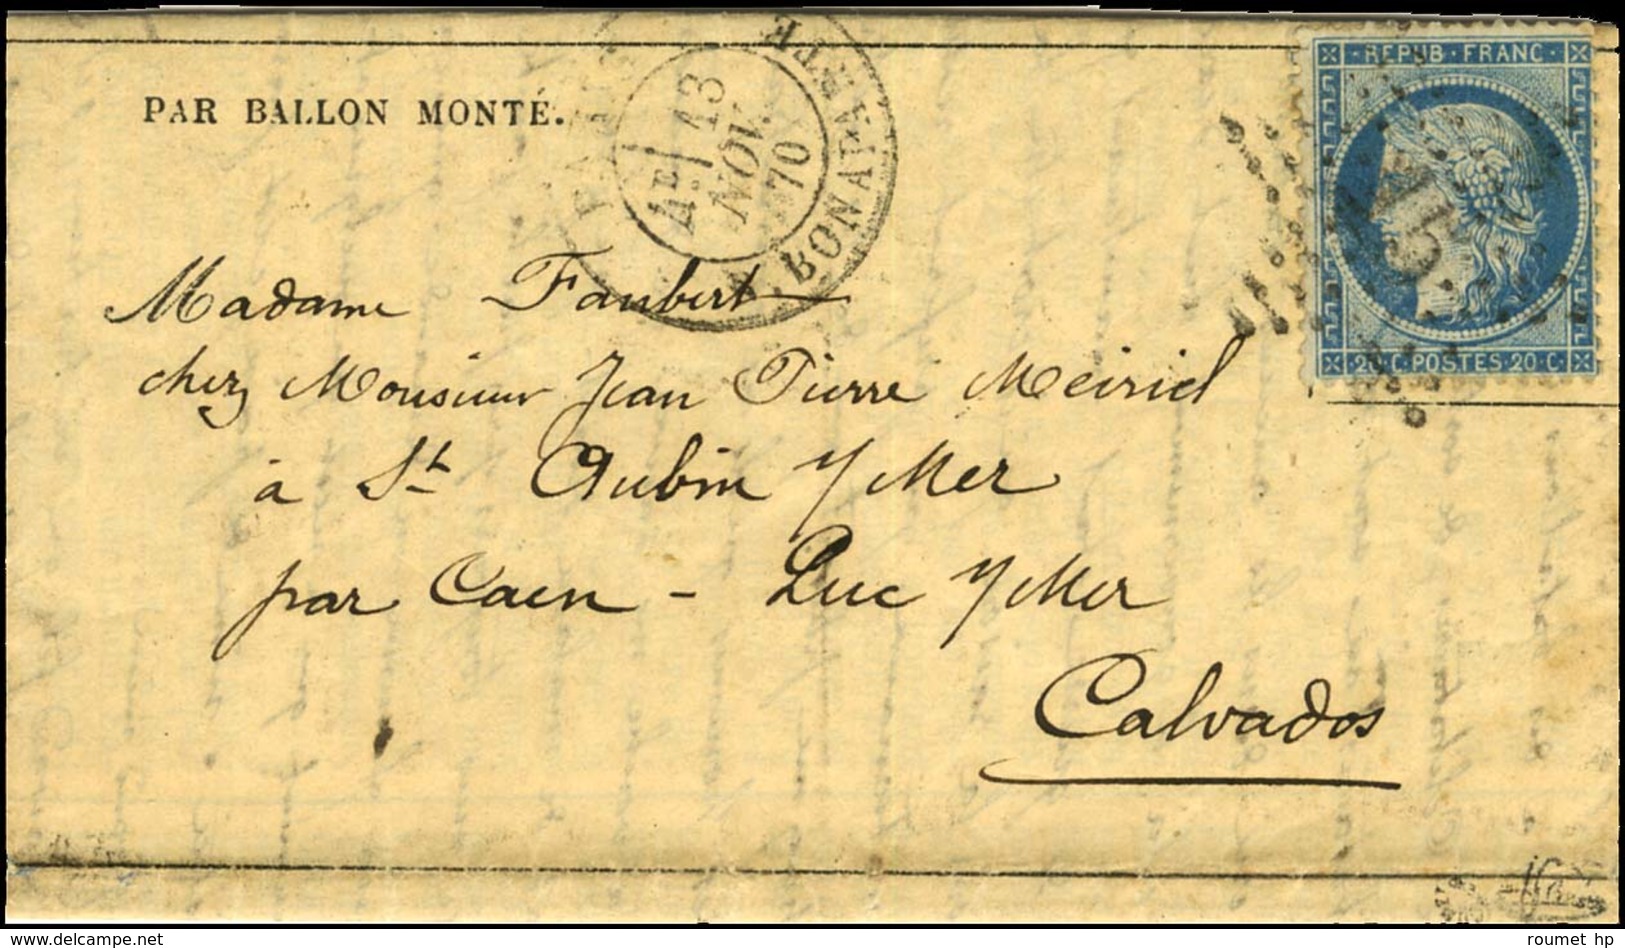 PAR BALLON MONTÉ.
PARIS R. BONAPARTE
Ae/ 13
NOV.
70
REPUB · FRANC
15
20 C · POSTES · 20 C
Madame Faubert
chez Monsieur Jean Pierre Meiriel
à St Aubin s/Mer
par Caen - Luc s/Mer
Calvados
roumet hp